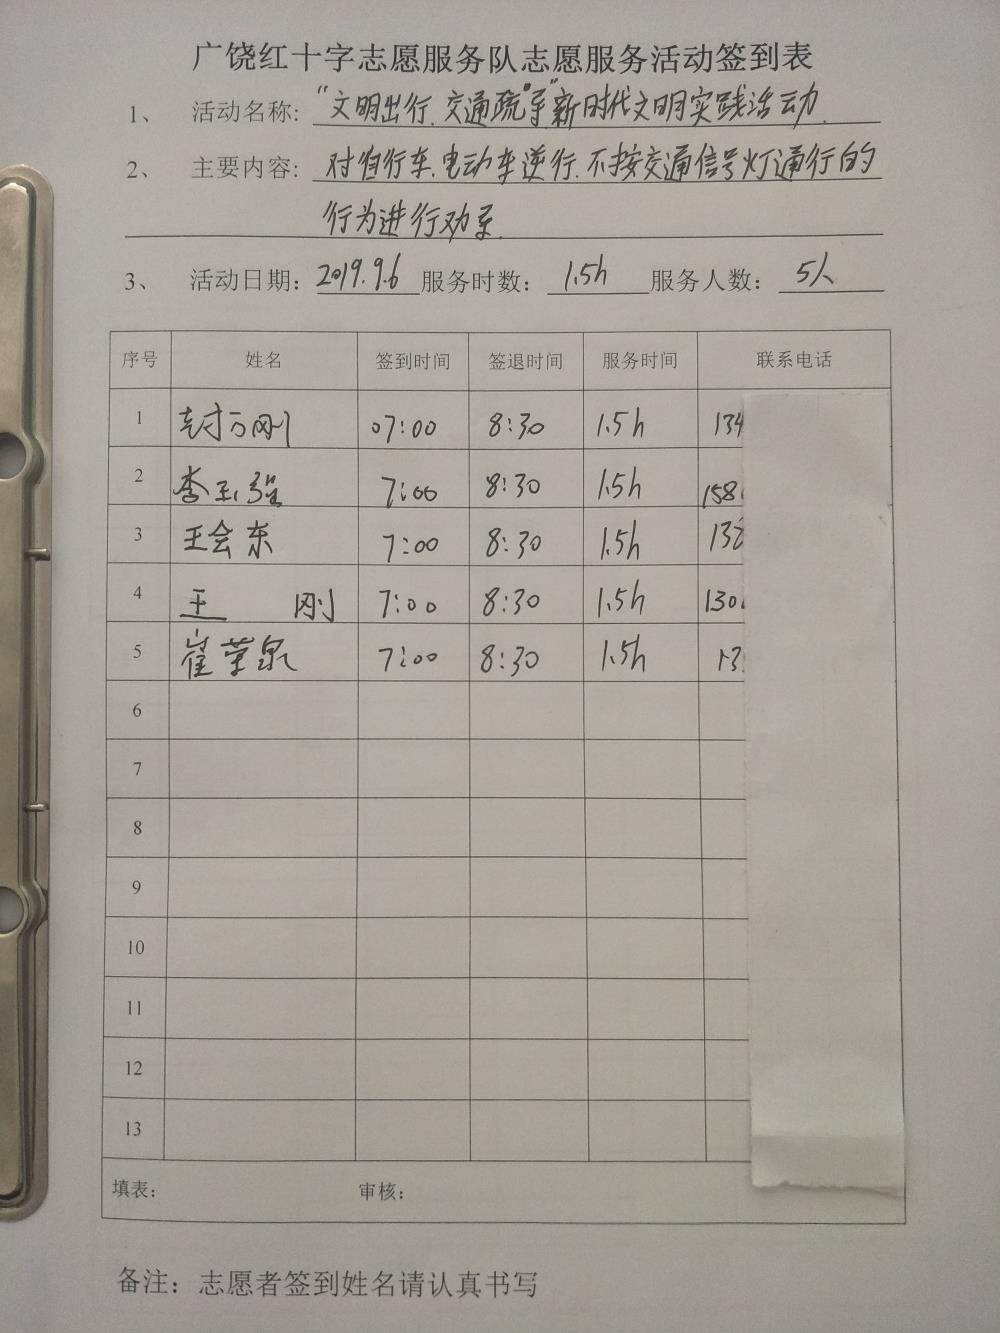 广饶红十字志愿服务队志愿服务活动签到表
1、 活动名称: "文明出行、交通疏导"新时代文明实践活动.
2、 主要内容: 对自行车、电动车逆行、不按交通信号灯通行的
行为进行劝导.
3、 活动日期: 2019.9.6 服务时数: 1.5h 服务人数: 5人
序号 姓名 签到时间 签退时间 服务时间 联系电话
1 封万刚 07:00 8:30 1.5h 134
2 李玉强 7:00 8:30 1.5h 158
3 王会东 7:00 8:30 1.5h 138
4 王 刚 7:00 8:30 1.5h 130
5 崔荣泉 7:00 8:30 1.5h 13
6
7
8
9
10
11
12
13
填表: 审核:
备注: 志愿者签到姓名请认真书写